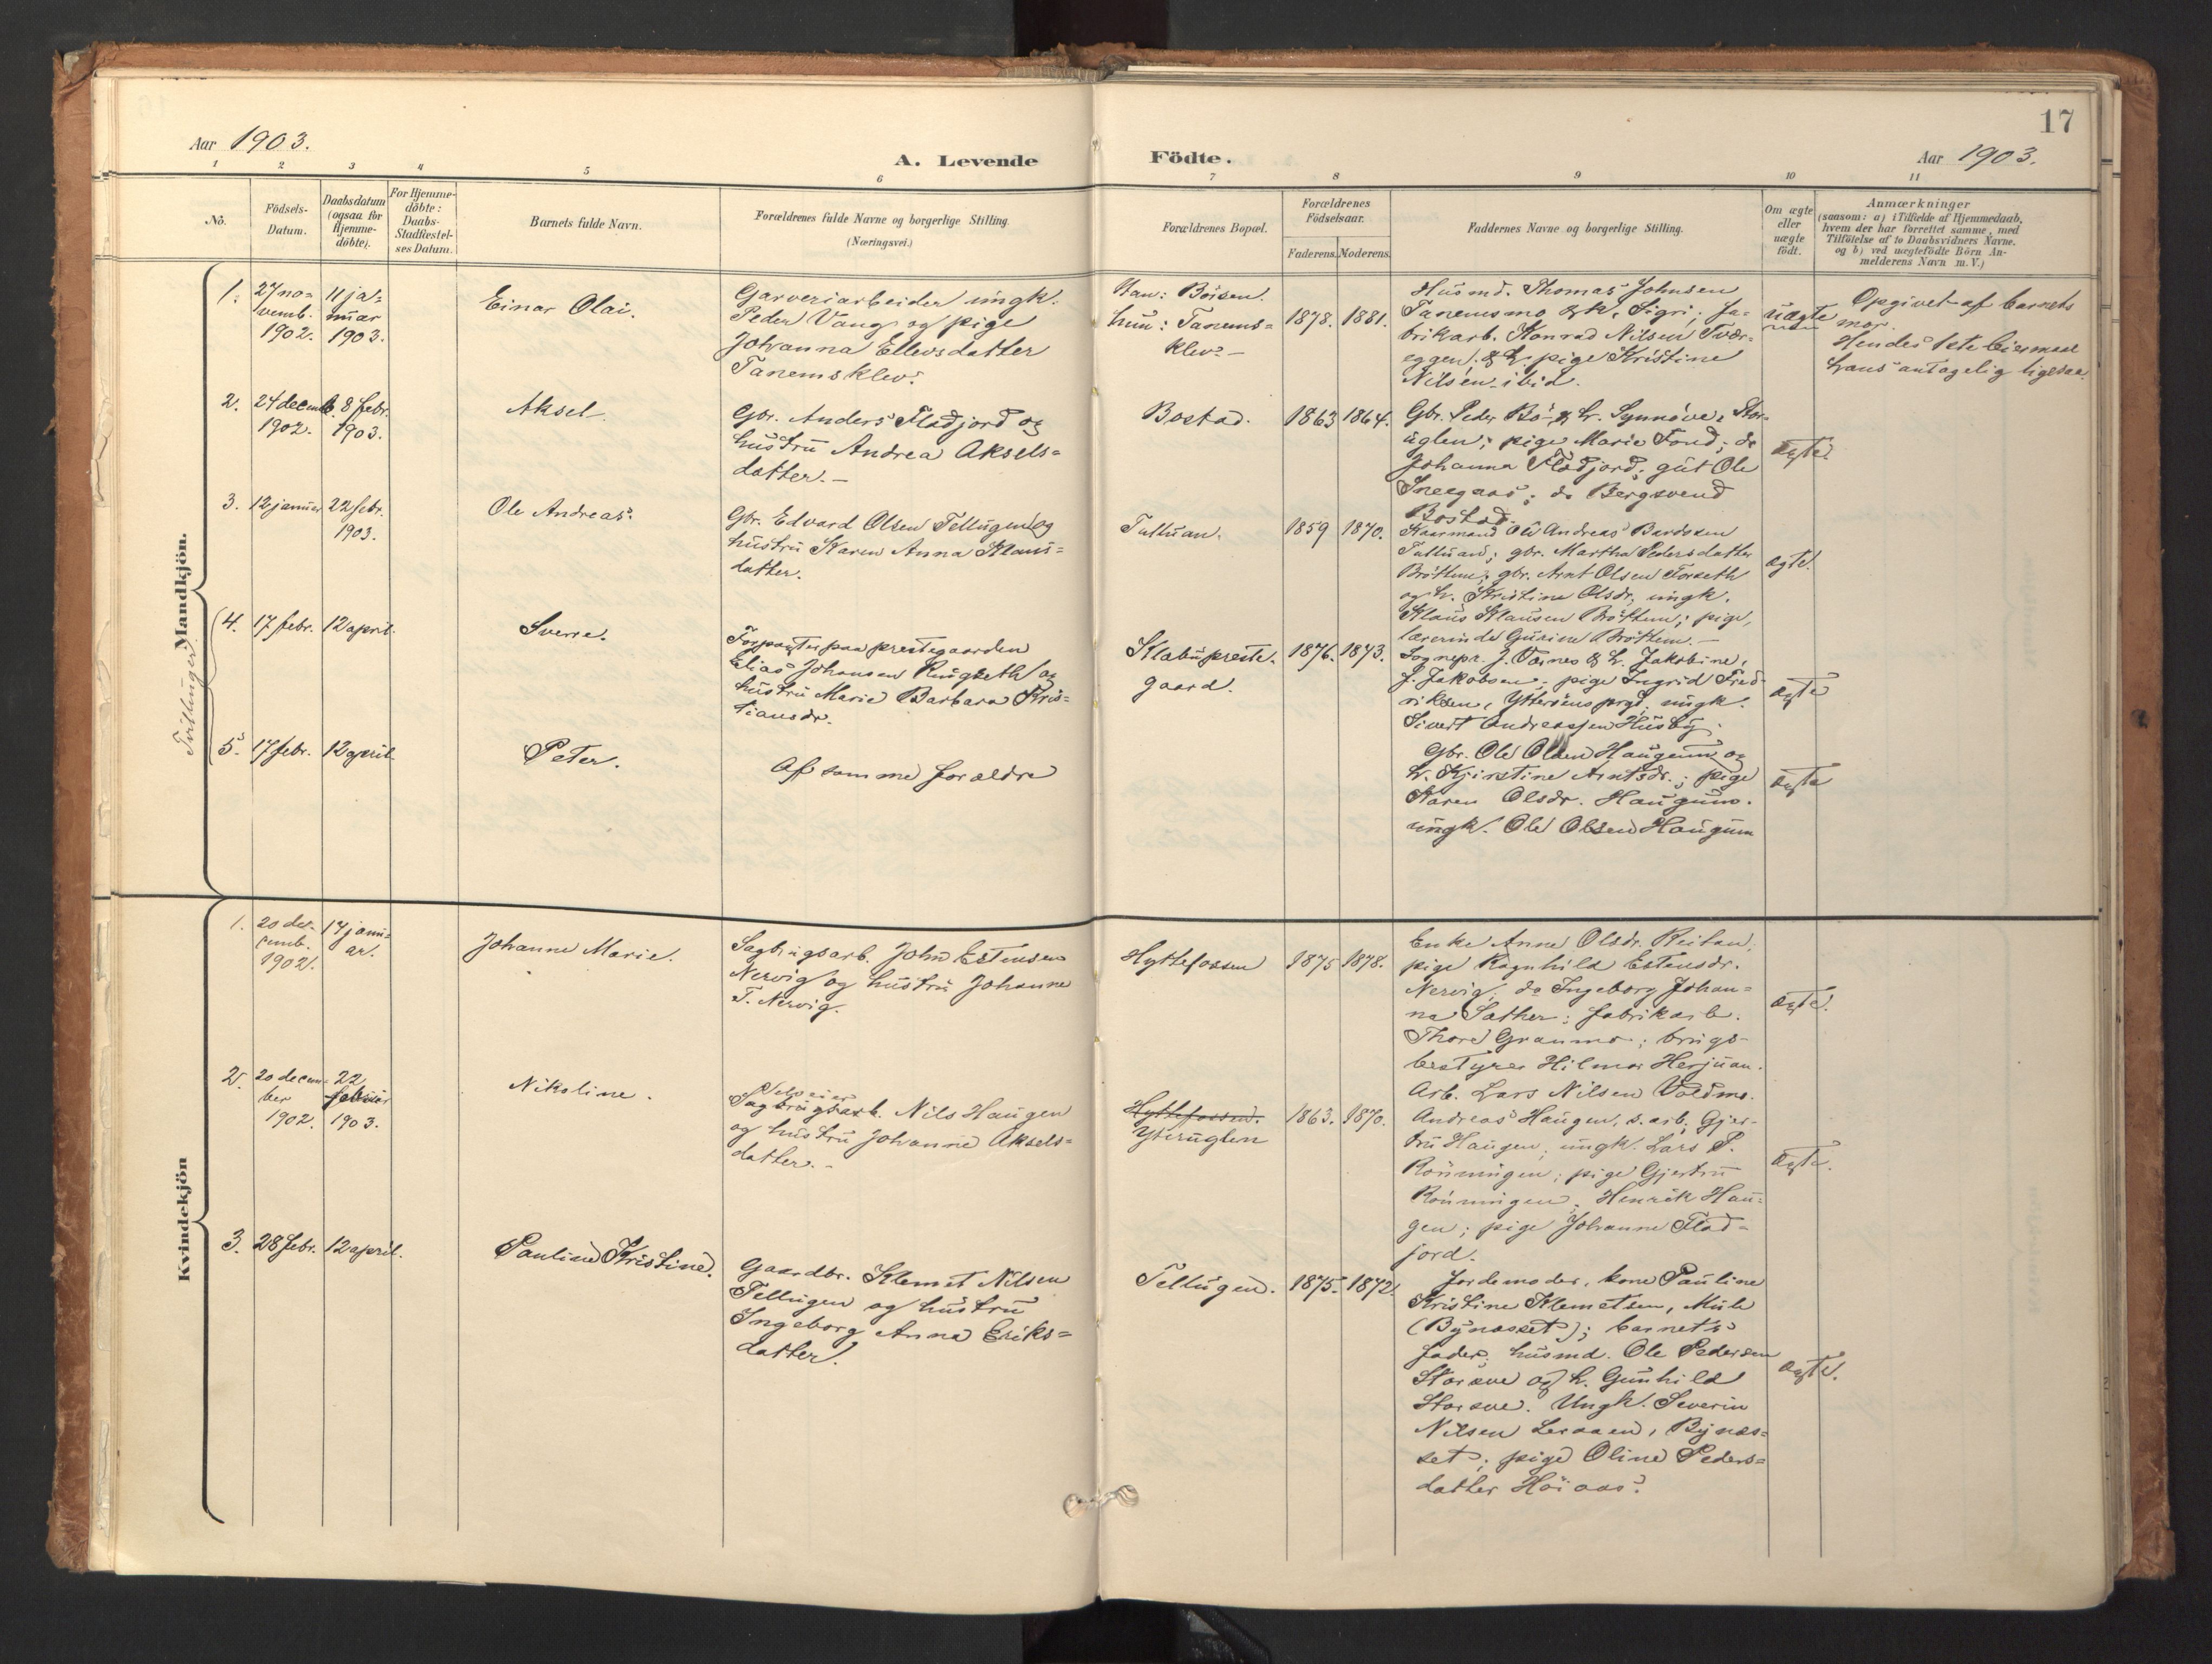 17
Aar 1903.
A. Levende
Födte.
Aar 1903.
1
2
3
4
5
6
7
8
9
10
11
No.
Födsels-
Datum.
Daabsdatum
(ogsaa for
Hjemme-
döbte).
For Hjemme-
döbte:
Daabs-
Stadfæstel-
ses Datum.
Barnets fulde Navn.
Forældrenes fulde Navne og borgerlige Stilling.
(Næringsvei.)
Forældrenes Bopæl.
Forældrenes
Födselsaar.
Faderens.
Moderens.
Faddernes Navne og borgerlige Stilling.
Om ægte
eller
uægte
födt.
Anmærkninger
(saasom: a) i Tilfælde af Hjemmedaab,
hvem der har forrettet samme, med
Tilföielse af to Daabsvidners Navne,
og b) ved uægtefödte Börn An-
melderens Navn m. V.)
Mandkjön.
1.
27 no-
vemb.
1902.
11 ja-
nuar
1903.
Einar Olai.
Garveriarbeider ungk.
Peder Vang og pige
Johanna Ellevsdatter
Tanemsklev.
Han: Börsen.
hun: Tanems-
klev. -
1878.
1881.
Husmd. Thomas Johnsen
Tanemsmo & k. Sigri; fa-
brikarb. Konrad Nilsen Tvær-
eggen & h. pige Kristine
Nilsen ibid.
uægte
Opgivet af barnets
mor.
Hendes 1ste leiermaal
hans antagelig ligesaa.
2.
24 decemb.
1902.
8 febr.
1903.
Aksel.
Gbr. Anders Fladjord og
hustru Andrea Aksels-
datter. -
Bostad.
1863
1864.
Gbr. Peder Bö & h. Synnöve, Stor-
uglen; pige Marie Fond; do
Johanna Flodjord; gut Ole
Sneegaas; do Bergsvend
Bostad.
ægte.
3.
12 januar
22 febr.
1903.
Ole Andreas.
Gbr. Edvard Olsen Tellugen og
hustru Karen Anna Klaus-
datter.
Tulluan.
1859
1870.
Kaarmand Ole Andreas Bardssen
Tulluan; gbr. Martha Pedersdatter
Bröttem; gbr. Arnt Olsen Forseth
og h. Kristine Olsdr, ungk.
Klaus Klausen Bröttem; pige,
lærerinde Gurine Bröttem. -
ægte.
Tvillinger
4.
17 febr.
12 april.
Sverre.
Forpagter paa prestegaarden
Elias Johansen Ringseth og
hustru Marie Barbara Kris-
tiansdr.
Klæbu preste-
gaard.
1876.
1873.
Sognepr. J. Værnes & h. Jakobine,
J. Jakobsen; pige Ingrid Fred-
riksen, Ytteröens prgd; ungk.
Sivert Andreassen Husby.
ægte
5.
17 febr.
12 april.
Peter.
Af samme forældre
Gbr. Ole Olsen Haugum og
h. Kjirstine Arntsdr.; pige
Karen Olsdr. Haugum.
ungk. Ole Olsen Haugum
ægte
Kvindekjön
1.
20 de-
cemb.
1902.
14 janu-
ar.
Johanne Marie.
Sagbrugsarb. John Estensen
Nervig og hustru Johanne
T. Nervig.
Hyttefossen
1875
1878.
Enke Anne Olsdr. Reitan;
pige Ragnhild Estensdr.
Nervig; do Ingeborg Johan-
na Sæther; fabrikarb.
Thore Granmo; brugs-
bestyrer Hilmar Herjuan.
Arb. Lars Nilsen Voldmo.
ægte.
2.
20 decem-
ber
1902.
22
februar
1903.
Nikoline.
Selveier
Sagbrugsarb. Nils Haugen
og hustru Johanne Aksels-
datter. -
Hyttefossen.
Yteruglen
1863.
1870.
Andreas Haugen, s.arb; Gjer-
tru Haugen, ungk. Lars P.
Rönningen; pige Gjertru
Rönningen; Henrik Hau-
gen; pige Johanne Flad-
jord.
ægte.
3.
28 febr.
12 april.
Pauline Kristine.
Gaardbr. Klemet Nilsen
Tellugen og hustru
Ingeborg Anna Eriks-
datter.
Tellugen.
1875.
1872.
Jordemoder, kone Pauline
Kristine Klemetsen, Mule
(Bynæsset); barnets
fader; husmd. Ole Pedersen
Storøve og h. Gunhild
Storøve. Ungk. Severin
Nilsen Leraaen, Bynæs-
set; pige Oline Peders-
datter Höiaas.
ægte.